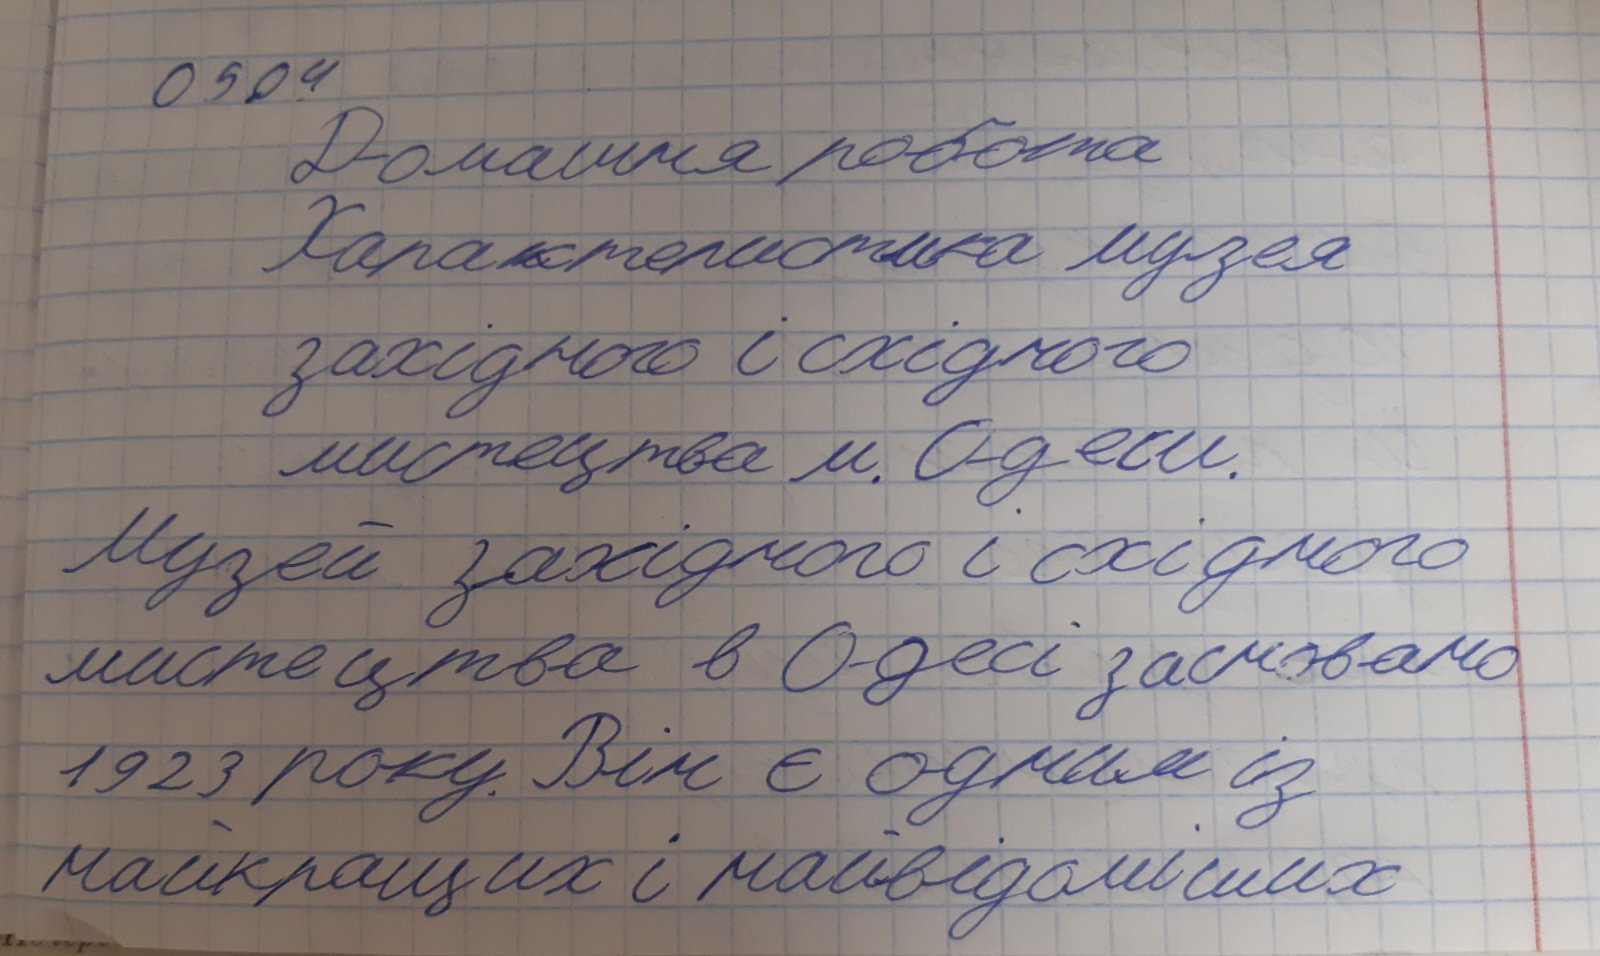 09.04
Домашня робота
Характеристика музея
західного і східного
мистецтва м. Одеси.
Музей західного і східного
мистецтва в Одесі засновано
1923 року. Він є одним із
найкращих і найвідоміших